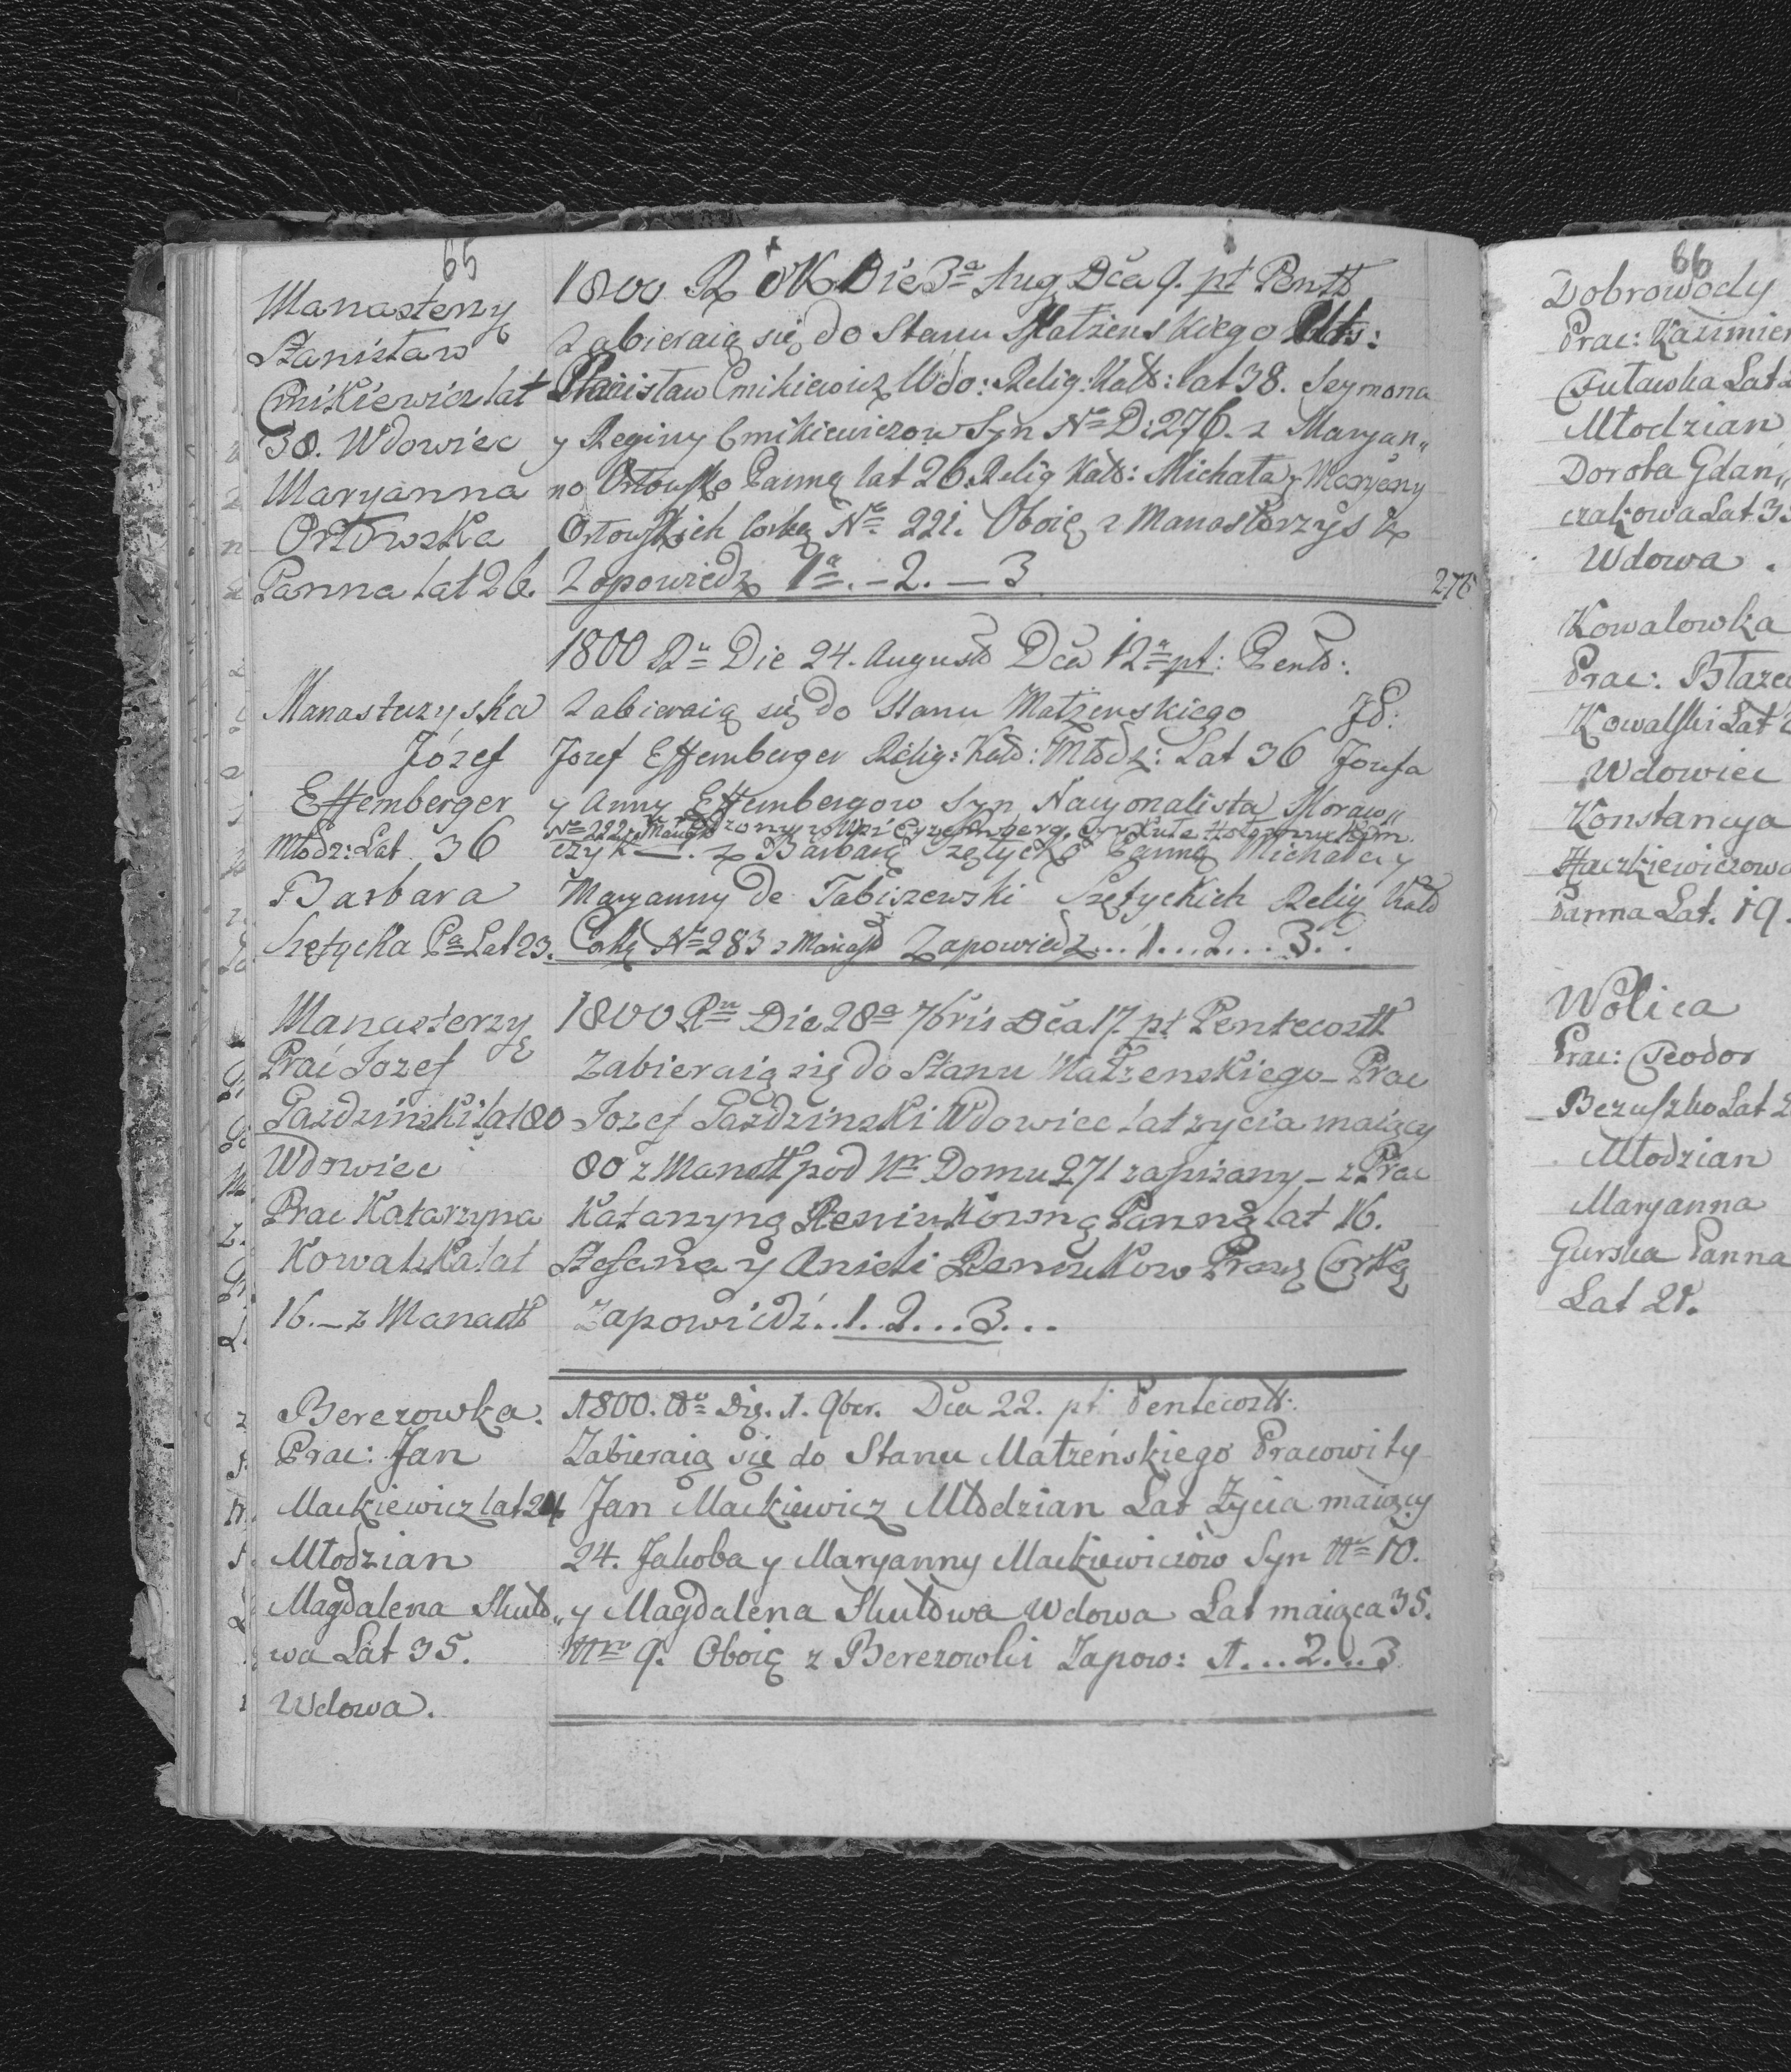 65
Manasterzy
Stanisław
Cmikiewicz lat
38. Wdowiec
Maryanna
Orłowska
Panna lat 26.
1800 RoK Die 3a Aug Dca 9. pt Pentt
Zabieraią się do Stanu Małżenskiego
Stanisław Cmikiewicz Wdo: Relig: Katt: lat 38. Szymona
y Reginy Cmikiewiczow Syn No D: 276. z Maryan„
no Orłowsko Panną lat 26 Relig Katt: Michała y Maryany
Orłowskich Corką No. 221. Oboię z Manasterzysk
Zapowiedz 1a. - 2. - 3
276
1800 Ru Die 24. August Dca 12a pt: Pent:
Manasterzyska
Józef
Effemberger
Młodz: Lat 36
Barbara
Szetycka Pa Lat 23.
Zabieraią się do Stanu Małżenskiego
Jozef Effemberger Relig: Katt: Młodz: Lat 36 Jozefa
y Anny Effembergow Syn Nacyonalista Moraw„
No 222 z Manast
czyk —. z Barbarą Szetycką Panną Michała y
Maryanny de Tabiszewski Szetyckich Relig Katt
Corką No 283 z Manast Zapowiedz... 1... 2... 3..
Manasterzy
Prac Jozef
Pazdzinski lat 80
Wdowiec
Prac Katarzyna
Kowalska lat
16. - z Manastt
1800 Ru Die 28a 7bris Dca 17. pt Pentecostt
Zabieraią się do Stanu Małżenskiego - Prac
Jozef Pazdzinski Wdowiec lat zycia maiący
80 z Manastt pod Nr Domu 271 zapisany - z Prac
Katarzyną Reniukowną Panną lat 16.
Stefana y Anieli Reniukow Pracę Corką
Zapowiedź.. 1.. 2... 3...
Berezowka.
Prac: Jan
Mackiewicz lat 24
Młodzian
Magdalena Skuto„
wa Lat 35.
Wdowa.
1800. Ru Die. 1. 9ber. Dca 22. pt Pentecostt:
Zabieraią się do Stanu Małżeńskiego Pracowity
Jan Mackiewicz Młodzian Lat Życia maiący
24. Jakoba y Maryanny Mackiewiczów Syn Nro 10.
y Magdalena Skutowa Wdowa Lat maiąca 35.
Nro 9. Oboię z Berezowki Zapow: 1... 2... 3
66
Dobrowody
Prac: Kazimier
Lat
Młodzian
Dorota Gdan„
czakowa Lat 3
Wdowa.
Kowalowka
Prac: Błaże
Kowalski Lat
Wdowiec
Konstancya
Haczkiewiczowa
Panna Lat. 19.
Wolica
Prac: Teodor
Bezuszko Lat 2
Młodzian
Maryanna
Gurska Panna
Lat 21.